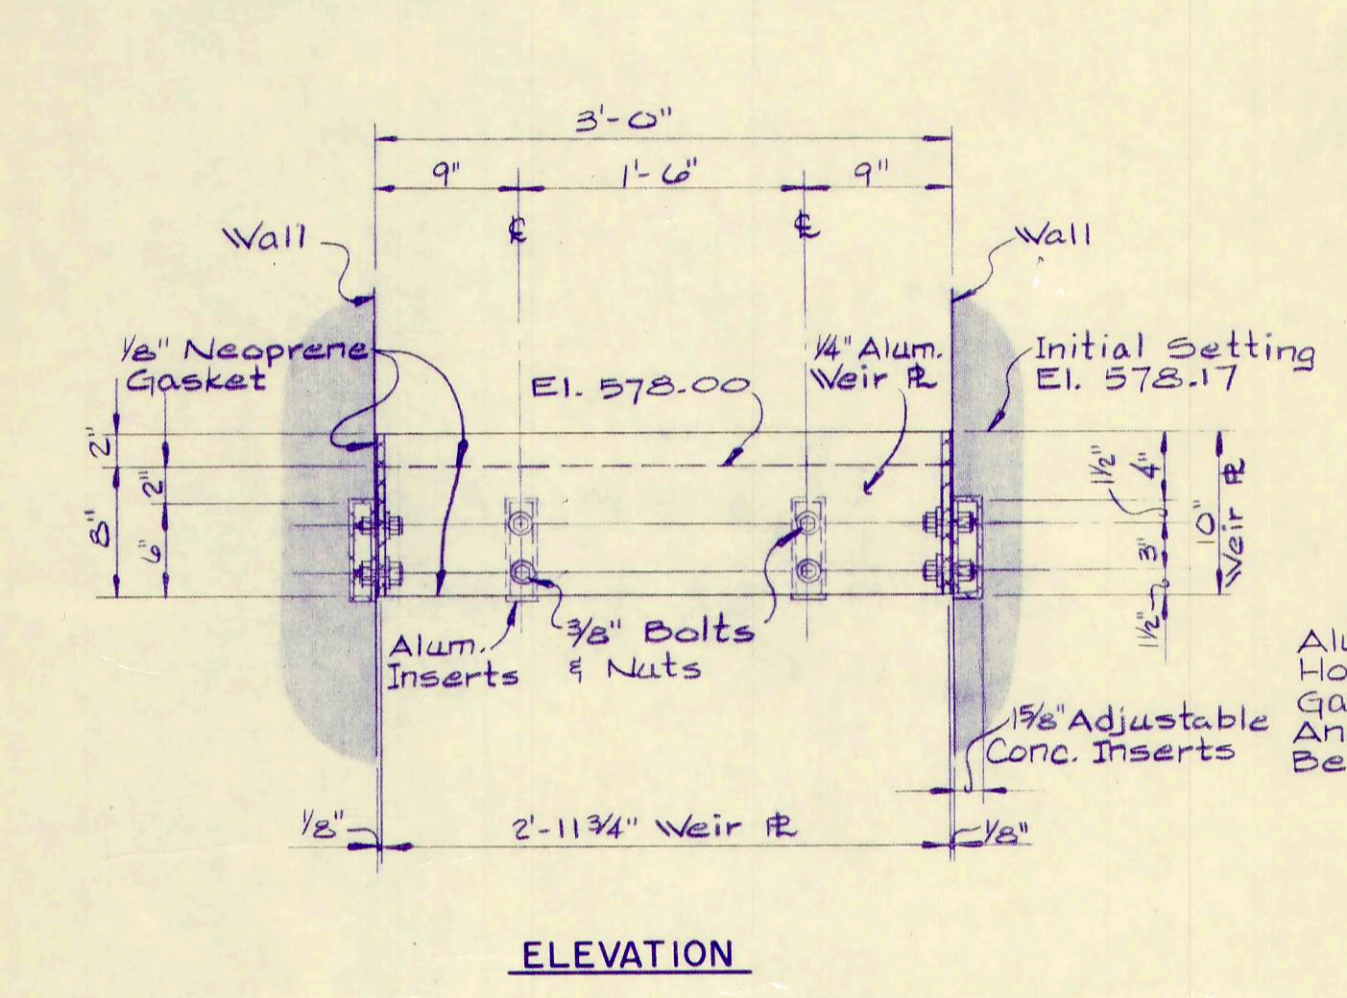 3'-0"
9" 1'-6" 9"
℄ ℄
Wall
Wall
1/8" Neoprene
Gasket
El. 578.00
1/4" Alum.
Weir ℙL
Initial Setting
El. 578.17
2"
8"
2"
6"
1 1/2"
4"
3"
1 1/2"
10"
Weir ℙL
Alum.
Inserts
3/8" Bolts
& Nuts
1 5/8" Adjustable
Conc. Inserts
Alu
Ho
Ga
An
Be
1/8" 2'-11 3/4" Weir ℙL 1/8"
ELEVATION